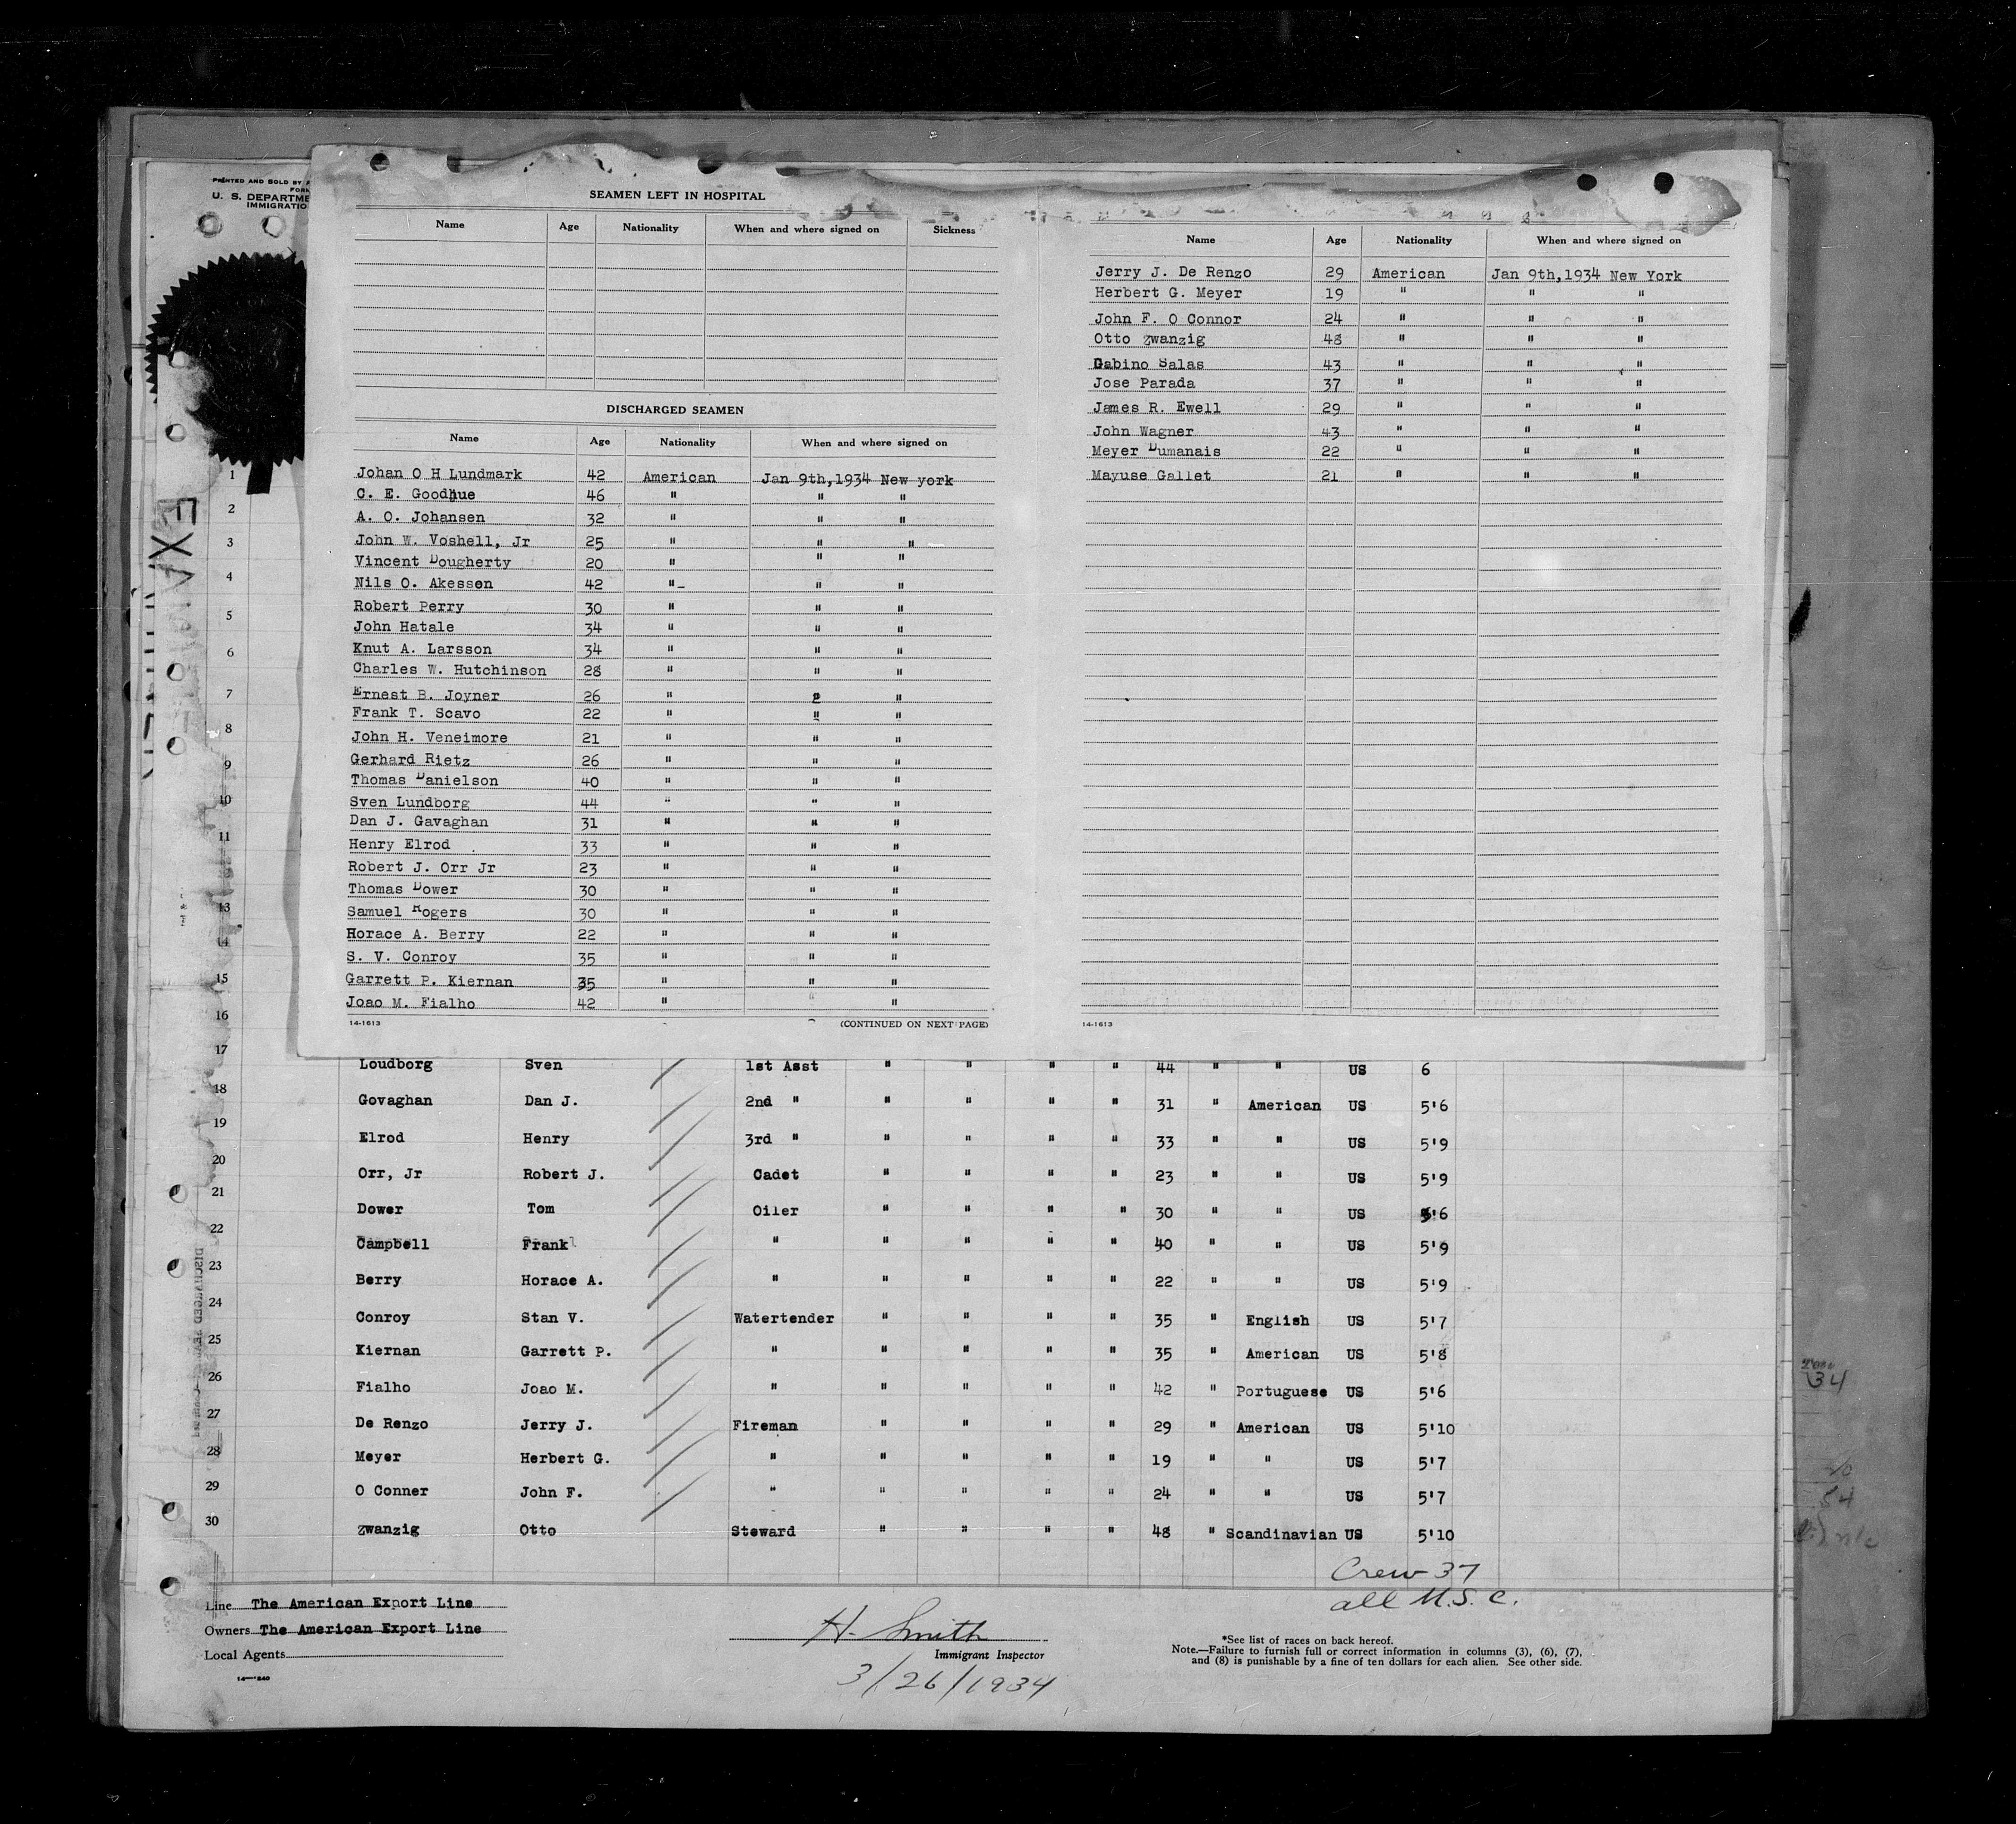 PRINTED AND SOLD BY
U. S. DEPARTME
IMMIGRATIO
EXA
SEAMEN LEFT IN HOSPITAL
Name Age Nationality When and where signed on Sickness
DISCHARGED SEAMEN
Name Age Nationality When and where signed on
Johan O H Lundmark 42 American Jan 9th,1934 New york
C. E. Goodhue 46 " " "
A. O. Johansen 32 " " "
John W. Voshell, Jr 25 " " "
Vincent Dougherty 20 " " "
Nils O. Akesson 42 "- " "
Robert Perry 30 " " "
John Hatale 34 " " "
Knut A. Larsson 34 " " "
Charles W. Hutchinson 28 " " "
Ernest B. Joyner 26 " 2 "
Frank T. Scavo 22 " " "
John H. Veneimore 21 " " "
Gerhard Rietz 26 " " "
Thomas Danielson 40 " " "
Sven Lundborg 44 " " "
Dan J. Gavaghan 31 " " "
Henry Elrod 33 " " "
Robert J. Orr Jr 23 " " "
Thomas Dower 30 " " "
Samuel Rogers 30 " " "
Horace A. Berry 22 " " "
S. V. Conroy 35 " " "
Garrett P. Kiernan 35 " " "
Joao M. Fialho 42 " " "
14-1613 (CONTINUED ON NEXT PAGE)
Name Age Nationality When and where signed on
Jerry J. De Renzo 29 American Jan 9th,1934 New York
Herbert G. Meyer 19 " " "
John F. O Connor 24 " " "
Otto Zwanzig 48 " " "
Gabino Salas 43 " " "
Jose Parada 37 " " "
James R. Ewell 29 " " "
John Wagner 43 " " "
Meyer Dumanais 22 " " "
Mayuse Gallet 21 " " "
14-1613
1
2
3
4
5
6
7
8
9
10
11
13
14
15
16
17
Loudborg Sven 1st Asst " " " " 44 " " US 6
18
Govaghan Dan J. 2nd " " " " " 31 " American US 5'6
19
Elrod Henry 3rd " " " " " 33 " " US 5'9
20
Orr, Jr Robert J. Cadet " " " " 23 " " US 5'9
21
Dower Tom Oiler " " " " 30 " " US 5'6
22
Campbell Frank " " " " " 40 " " US 5'9
23
Berry Horace A. " " " " " 22 " " US 5'9
24
Conroy Stan V. Watertender " " " " 35 " English US 5'7
25
Kiernan Garrett P. " " " " " 35 " American US 5'8
26
Fialho Joao M. " " " " " 42 " Portuguese US 5'6
27
De Renzo Jerry J. Fireman " " " " 29 " American US 5'10
28
Meyer Herbert G. " " " " " 19 " " US 5'7
29
O Conner John F. " " " " " 24 " " US 5'7
30
Zwanzig Otto Steward " " " " 48 " Scandinavian US 5'10
Crew 37
all U.S.C.
Line The American Export Line
Owners The American Export Line
Local Agents
14—240
H. Smith
Immigrant Inspector
3/26/1934
*See list of races on back hereof.
Note.—Failure to furnish full or correct information in columns (3), (6), (7),
and (8) is punishable by a fine of ten dollars for each alien. See other side.
34
54